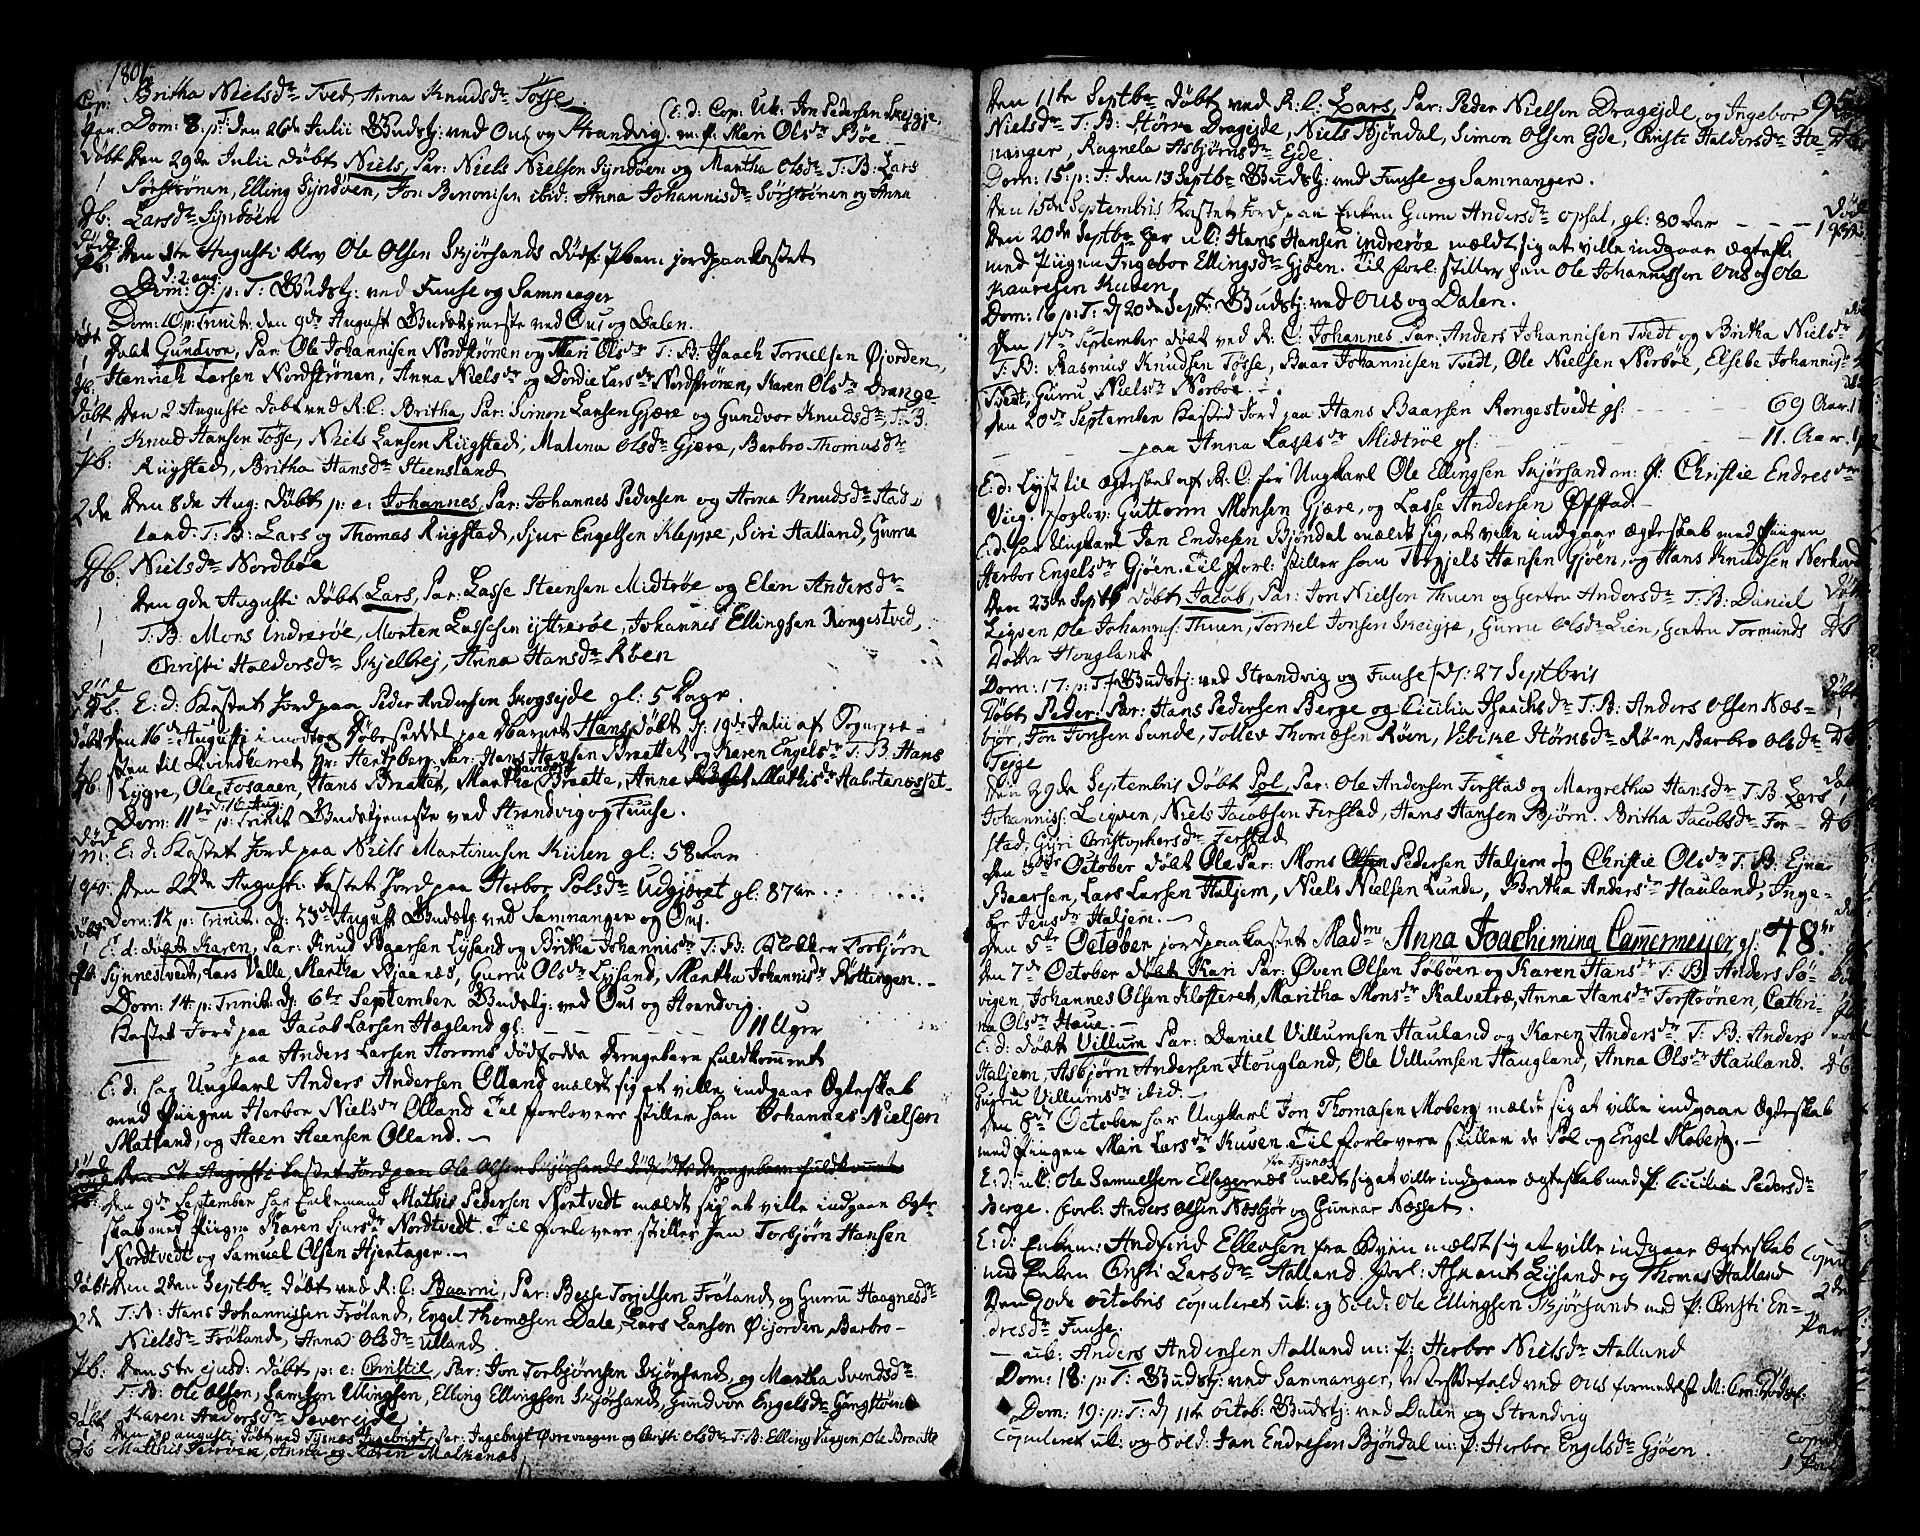 1801
Britha Nielsdr Tved, Anna Knudsdr Tösse
Cop: (E. d. Cop: Uk: Jon Pedersen Skejgie
Par Dom: 8. p: T: den 26de Julii Budstj: ved Ous og Strandvig. m. p. Mari Olsdr Böe.
Döbt Den 29de Julii döbt Niels, Par: Niels Nielsen Syndöen og Martha Olsdr T: B: Lars
1 Sörströnen, Elling Syndöen, Jon Benonisen ibid: Anna Johannisdr Sörströnen og Anna
Db: Larsdr Syndöen
Död: Den 1te Augusti blev Ole Olsen Skjörsands Dödf: Pbarn jordpaakastet
d: 2 aug:
Dom: 9: p: T: Budstj: ved Fuuse og Samnanger
Dom: 10 p: Trinit: den 9de August Budstjeneste ved Ous og Dalen.
Döbt Gundvor, Par: Ole Johannisen Nordströnen og Mari Olsdr T: B: Isaach Torkelsen Øjorden,
Henrich Larsen Nordströnen, Anna Nielsdr og Dordie Larsdr Nordströnen, Karen Olsdr Drange
Döbt Den 2 Augusti döbt ved R. C: Britha, Par: Simon Larsen Gjære og Gundvor Knudsdr, T: B:
1 Knud Hansen Tösse, Niels Larsen Rügstad, Malena Olsdr Gjære, Barbro Thomasdr
Pb: Rügstad, Britha Hansdr Steensland
2de Den 8de Aug: Döbt p: e: Johannes, Par: Johannes Pedersen og Anna Knudsdr Had
land. T: B: Lars og Thomas Rügstad, Sjur Engelsen Kleppe, Siri Halland, Gurru
Db: Nielsdr Nordböe
Den 9de Augusti döbt Lars, Par: Lasse Steensen Midtröe og Elen Andersdr
T: B: Mons Indreröe, Morten Lassesen yttreröe, Johannes Ellingsen Rongestved,
Christi Haldorsdr Skjelbrej, Anna Hansdr Röen
död
1 Db. E: d: Kastet Jord paa Peder Andersen Skogsejde gl: 5 Dage
Döbt Den 16de Augusti imodtog Döbeseddel paa Barnet Hans döbt d: 19de Julii af Sognepræ-
sten til Qvindherret Hr: Hertzberg, Par: Hans Hansen Braattet og Karen Engelsdr T: B: Hans
Db: Lygre, Ole Fosaaen, Hans Braattet, Martha Braatte, Anna Mathisdr
d: 16 Aug:
Dom: 11te p: Trinit Budstjeneste ved Strandvig og Fuuse.
död
1 M: E: d: Kastet Jord paa Niels Martinusen Kiilen gl: 58 Aar
1 qv: Den 22de Augusti kastet Jord paa Herbor Polsdr Udgjöret gl: 87 Aar
Dom: 12 p: Trinit: d: 23de August Budstj: ved Samnanger og Ous.
Döbt E: d: döbt Karen, Par: Knud Baarsen Lysand og Britha Johannisdr T: B: Klokker Torbjörn
Pb. Synnestvedt, Lars Valle, Martha Bjaanæs, Gurru Olsdr Lysand, Martha Johannisdr Röttingen.
Dom: 14 p: Trinit: d: 6te September Budstj: ved Ous og Strandvig.
Kastet Jord paa Jacob Larsen Hægland gl: - - - 11 Uger
paa Anders Larsen Storoms dödfödde drengebarn fuldkommet
E: d: har Ungkarl Anders Andersen Ølland mældt sig at ville indgaae Ægteskab
med Piigen Herbor Nielsdr Ølland Til forlovere stiller han Johannes Nielsen
Matland, og Steen Steensen Ølland.
Den 1te Augusti kastet Jord paa Ole Olsen Skjörsands dödfödte drengebarn fuldkommet
Den 9de September har Enkemand Mathis Pedersen Nortvedt mældt sig at ville indgaae Ægte
skab med Piigen Karen Sjursdr Nordtvedt. Til forlovere stiller han Torbjörn Hansen
Nordtvedt og Samuel Olsen Hjertager.
Döbt Den 2den Septbr döbt ved R. C: Baarni, Par: Besse Torjelsen Fröland og Gurru Haagnesdr
2de T: B: Hans Johannissen Fröland, Engel Thomæsen Dale, Lars Larsen Øijorden, Barbro
Nielsdr Fröland, Anna Olsdr Ulland
Pb: Den 5te ejusd: döbt p: e: Christie, Par: Jon Torbjörnsen Skjörsand, og Martha Svendsdr
T: B: Ole Olsen, Samson Ullingsen, Elling Ellingsen Skjörsand, Gundvor Engelsdr Gangstöen
Karen Andersdr Severejde
Döbt Den 30 augusti döbt ved Tysnæs Ingebrigt, Par: Ingebrigt Övrevaagen og Christi Olsdr T: B: Elling Vaagen, Ole Braatte
Db Matthis, Anna og Karen Malkenæs
95
Den 11te Septbr döbt ved R. C: Lars, Par: Peder Nielsen Dragejde, og Ingebor
Nielsdr T: B: Större Dragejde, Niels Bjöndal, Simon Olsen Eyde, Christi Haldorsdr He-
nanger, Ragnela Asbjörnsdr Eyde.
Dom: 15: p: T: den 13 Septbr Budstj: ved Fuuse og Samnanger.
Den 15de Septembris Kastet Jord paa Enken Gurru Andersdr Opsal, gl: 80 Aar - - - Död
Den 20de Septbr har uk: Hans Hansen indreröe mældt sig at ville indgaae Ægtesk:
med Piigen Ingebor Ellingsdr Gjöen. Til forl: stiller han Ole Johannissen Ous og Ole
Lauresen Kuven
Dom: 16 p: T: d 20de Sept: Budstj: ved Ous og Dalen.
Den 17de September döbt ved R: C: Johannes Par: Anders Johannisen Tvedt og Britha Nielsdr
T: B: Rasmus Knudsen Tösse, Baar Johannisen Tvedt, Ole Nielsen Norböe, Elsebe Johannisdr
Tvedt, Gurru Nielsdr Norböe
Den 20de September kastet Jord paa Hans Baarsen Rongestvedt gl: - - - 69 Aar. 1
- - - paa Anna Lassesdr Midtröe gl: - - - 11. Aar.
E: d: Lyst til Ægteskab af R. C. for Ungkarl Ole Ellingsen Skjörsand m: P: Christie Endresdr
Viig. Forlov: Guttorm Monsen Gjære, og Lasse Andersen Øfstad.
E: d: har Ungkarl Jan Endresen Bjöndal mældt sig, at ville indgaae Ægteskab med Piigen
Herbor Engelsdr Gjöen. Til forl: stiller han Torgjels Hansen Gjöen, og Hans Knudsen Nerhovd
Den 23de Septbr döbt Jacob, Par: Jon Nielsen Thuen og Gertru Andersdr T: B: Daniel Döbt
Ligsen Ole Johannes: Thuen, Torkel Jonsen Skeigie, Gurru Olsdr Lien, Gertru Tormunds Db
Dotter Hougland
Dom: 17: p: T: Budstj: ved Strandvig og Fuuse d: 27 Septbris
Döbt Peder, Par: Hans Pedersen Berge og Cicilia Isaachsdr T: B: Anders Olsen Næs- Döbt
björ, Jon Jonsen Sunde, Tollev Thomæsen Röen, Vibike Störrisdr Röen, Barbro Olsdr Db
Tejge
Den 29de Septembris Döbt Pol, Par: Ole Andersen Ferstad og Margretha Hansdr T: B: Lars
Johannis: Ligsen, Niels Jacobsen Ferstad, Hans Hansen Björn. Britha Jacobsdr Fer- Db
stad, Gyri Christophersdr Ferstad
Den 3die October döbt Ole Par: Mons Pedersen Haljem og Christie Olsdr T: B: Ejner
Baarsen, Lars Larsen Haljem, Niels Nielsen Lunde, Britha Andersdr Hauland, Inge-
bor Jensdr Haljem.
Den 5te October jordpaakastet Madme Anna Joachiming Cammermeyer gl: 48.
Den 7de October döbt Kari Par: Øven Olsen Söböen og Karen Hansdr T: B Anders Sö-
vigen, Johannes Olsen Klosteret, Maritha Monsdr Kalvetræ, Anna Hansdr Forströnen, Cathri-
na Olsdr Haue.
E: d: döbt Villum Par: Daniel Villumsen Hauland og Karen Andersdr T: B: Anders
Haljem, Asbjörn Andersen Hougland, Ole Villumsen Haugland, Anna Olsdr Hauland. Db
Gurru Villumsdr ibid.
Den 8de October har Ungkarl Jon Thomasen Moberg mældt sig at ville indgaae Ægteskab
med Piigen Mari Larsdr Kuven. Til forlovere stiller de Pol og Engel Moberg.
fra Tysnæs
E: d: uk: Ole Samuelsen Elsagernæs mældt sig at ville indgaae ægteskab med P: Cicilia Pedersdr
Berge. forl: Anders Olsen Næsbjör og Gunnar Næsset.
E: d: Enkem: Andfind Ellevsen fra Byen mældt sig at ville indgaae Ægteskab
med Enken Christi Larsdr Aalland forl: Askaut Lysand og Thomas Halland
Den 10de Octobris copuleret uk: og Sold: Ole Ellingsen Skjörsand med P: Christi En- 2de
dresdr Fuuse. Par
- uk: Anders Andersen Aalland m: P: Herbor Nielsdr Aalland
Dom: 18: p: T: Budstj: ved Samnanger,
Dom: 19: p: T: d 11te Octob: Budstj: ved Dalen og Strandvig
Copuleret uk: og Sold: Jan Endresen Bjöndal m: P: Herbor Engelsdr Gjöen.